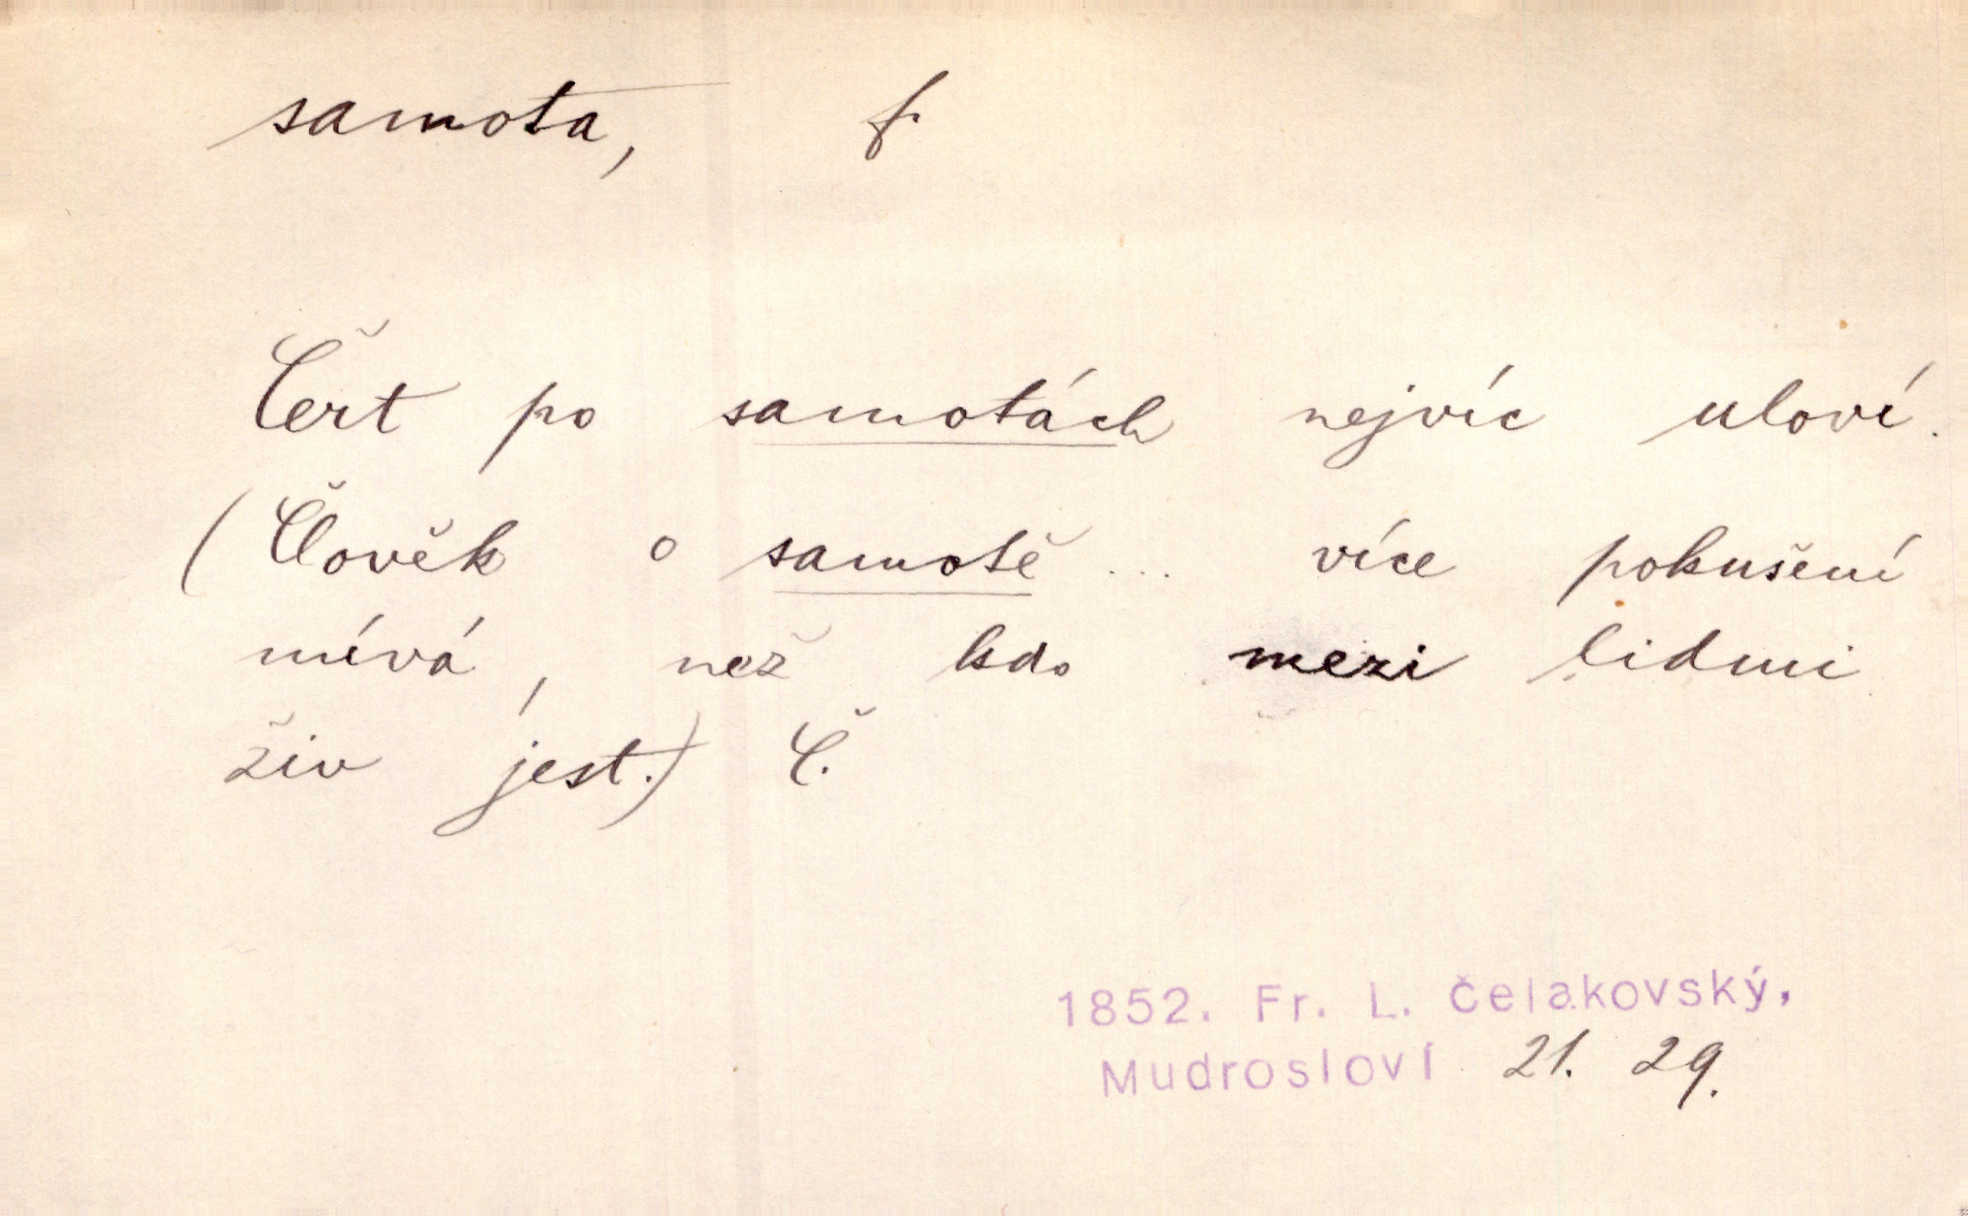 samota, f.
Čert po samotách nejvíc uloví.
(Člověk o samotě ... více pokušení
mívá, než kdo mezi lidmi
živ jest.) Č.
1852. Fr. L. Čelakovský,
Mudrosloví 21. 29.